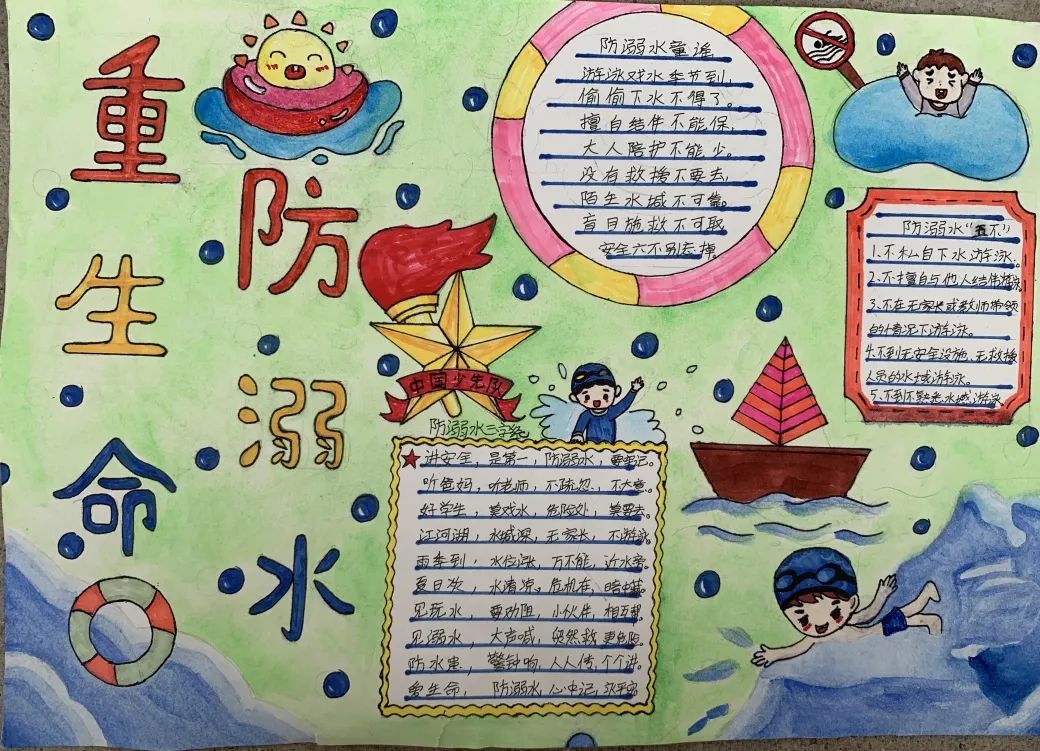 重生命
防溺水
防溺水童谣
游泳戏水季节到,
偷偷下水不得了。
擅自结伴不能保,
大人陪护不能少。
没有救援不要去,
陌生水域不可靠。
盲目施救不可取
安全六不别忘掉。
中国少年队
防溺水"五不"
1.不私自下水游泳.
2.不擅自与他人结伴游泳.
3.不在无家长或教师带领
的情况下游泳.
4.不到无安全设施、无救援
人员的水域游泳.
5.不到不熟悉水域游泳
防溺水三字经
讲安全,是第一,防溺水,要牢记。
听爸妈,听老师,不疏忽,不大意。
好学生,莫戏水,危险处,莫要去。
江河湖,水域深,无家长,不游泳
雨季到,水位涨,万不能,近水旁。
夏日炎,水清凉。危机在,暗中藏。
见玩水,要劝阻,小伙伴,相互帮
见溺水,大声喊,贸然救,更危险。
防水患,警钟响,人人传,个个讲。
爱生命,防溺水,心中记,